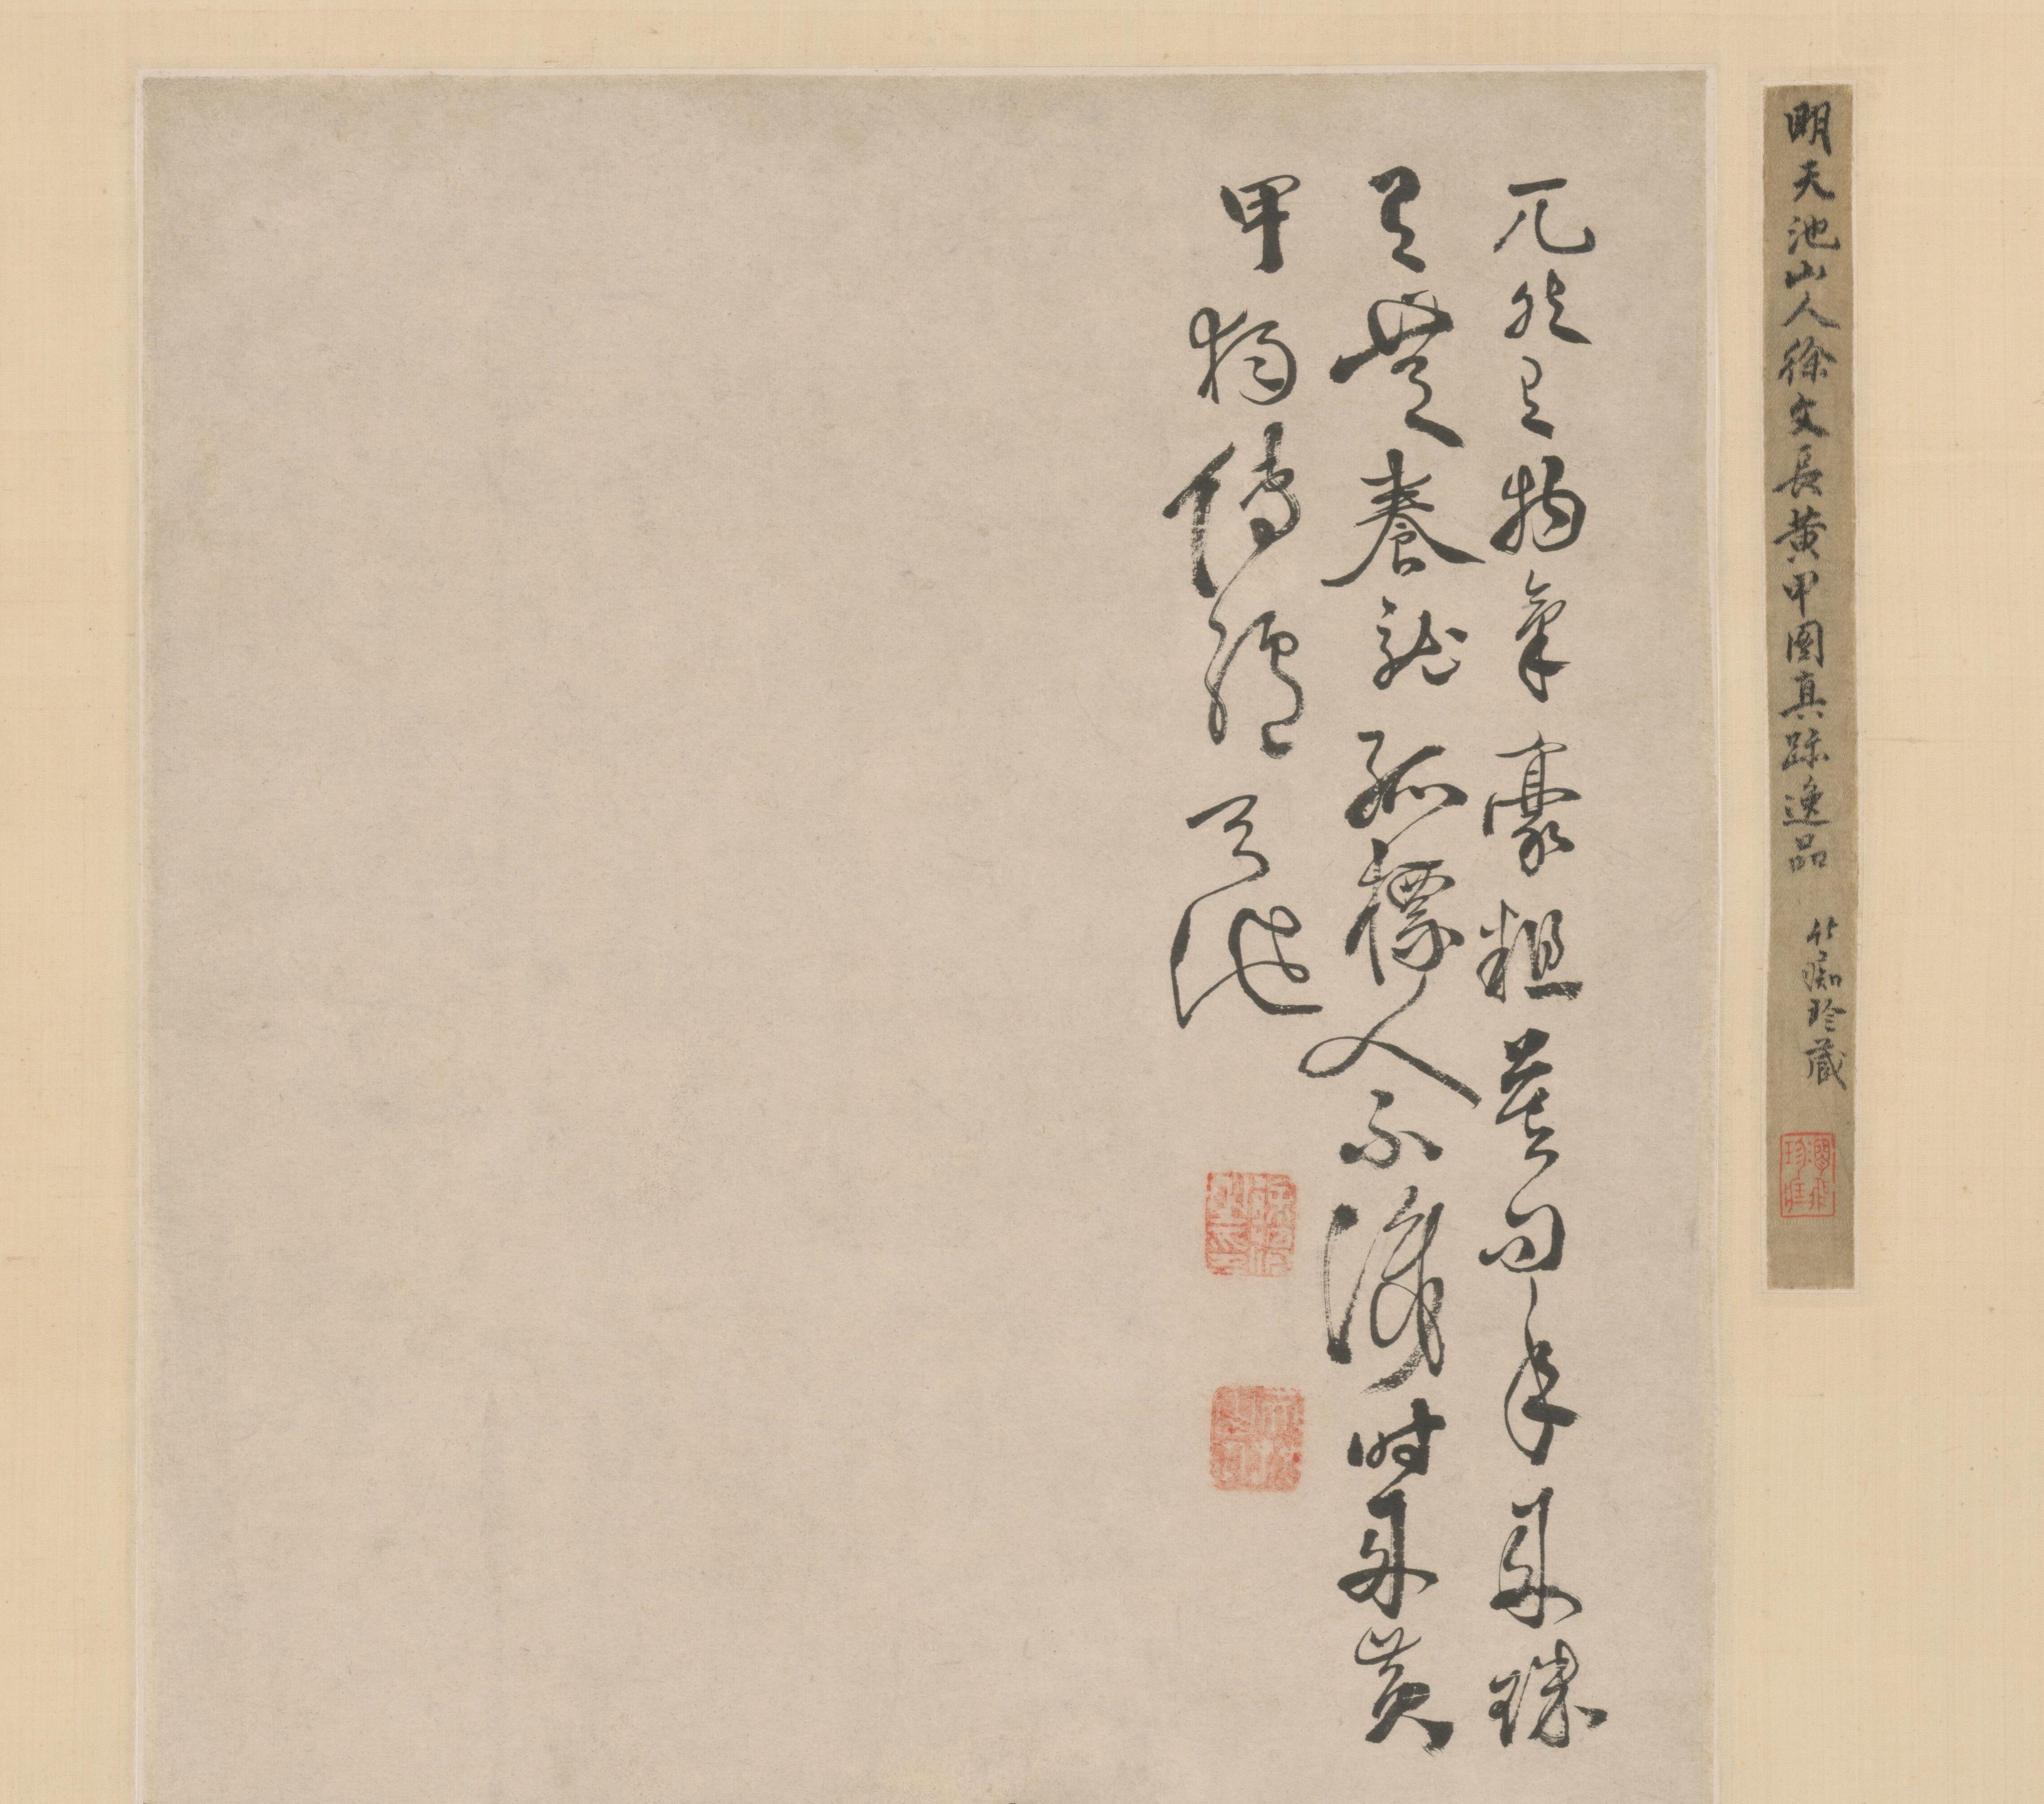 明天池山人徐文長黄甲圖真跡逸品 竹痴珍藏
兀然有物氣豪粗莫問年來珠
有無養就孤標人不識时來黄
甲獨傳臚 天池